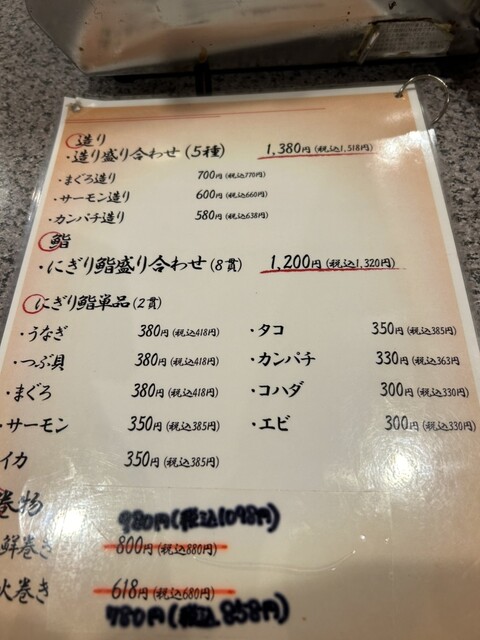 造り
・造り盛り合わせ(5種) 1,380円(税込1,518円)
・まぐろ造り 700円(税込770円)
・サーモン造り 600円(税込660円)
・カンパチ造り 580円(税込638円)
鮨
・にぎり鮨盛り合わせ(8貫) 1,200円(税込1,320円)
にぎり鮨単品(2貫)
・うなぎ 380円(税込418円) ・タコ 350円(税込385円)
・つぶ貝 380円(税込418円) ・カンパチ 330円(税込363円
・まぐろ 380円(税込418円) ・コハダ 300円(税込330円)
・サーモン 350円(税込385円) ・エビ 300円(税込330円)
イカ 350円(税込385円)
巻物
980円(税込1078円)
鮮巻き 800円(税込880円)
火巻き 618円(税込680円)
780円(税込858円)